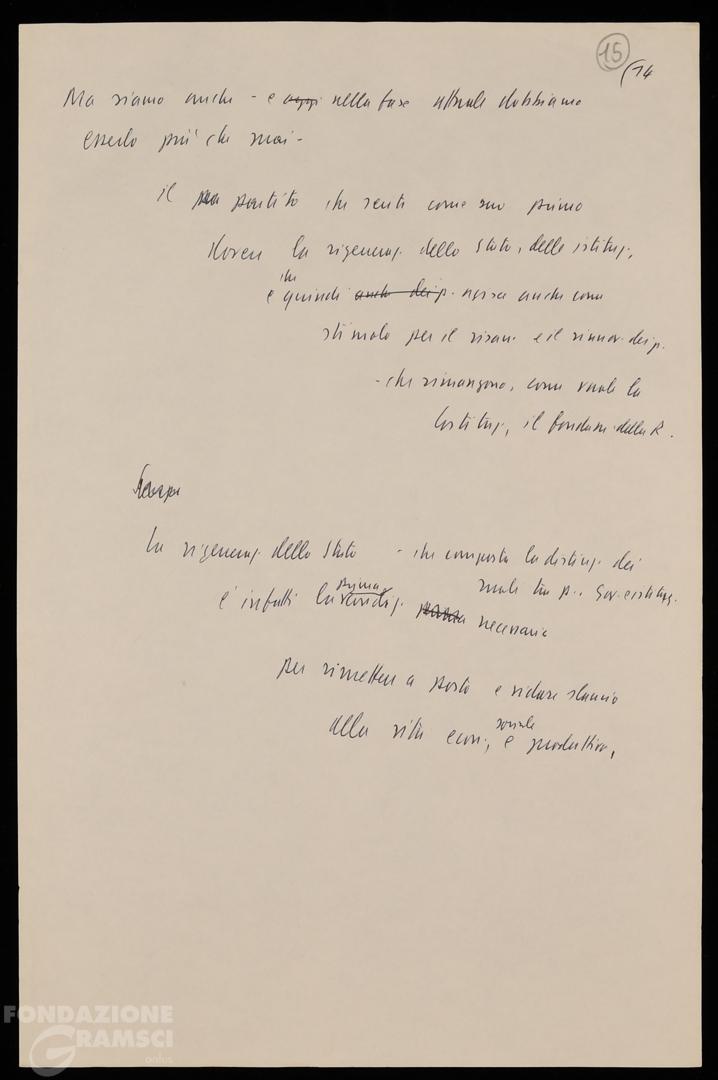 15
(14
Ma siamo anche - e oggi nella fase attuale dobbiamo
esserlo più che mai -
il partito che sente come suo primo
dovere la rigeneraz. dello Stato, delle istituz.,
che
e quindi anche dei p. agisce anche come
stimolo per il risan. e il rinnov. dei p.
- che rimangono, come vuole la
Costituz., il fondam. della R.
La rigeneraz. dello Stato - che comporta la distinz. dei
ruoli tra p., gov. e istituz.
prima
è infatti la condiz. necessaria
per rimettere a posto e ridare slancio
sociale
alla vita econ., e produttiva,
FONDAZIONE
GRAMSCI
onlus